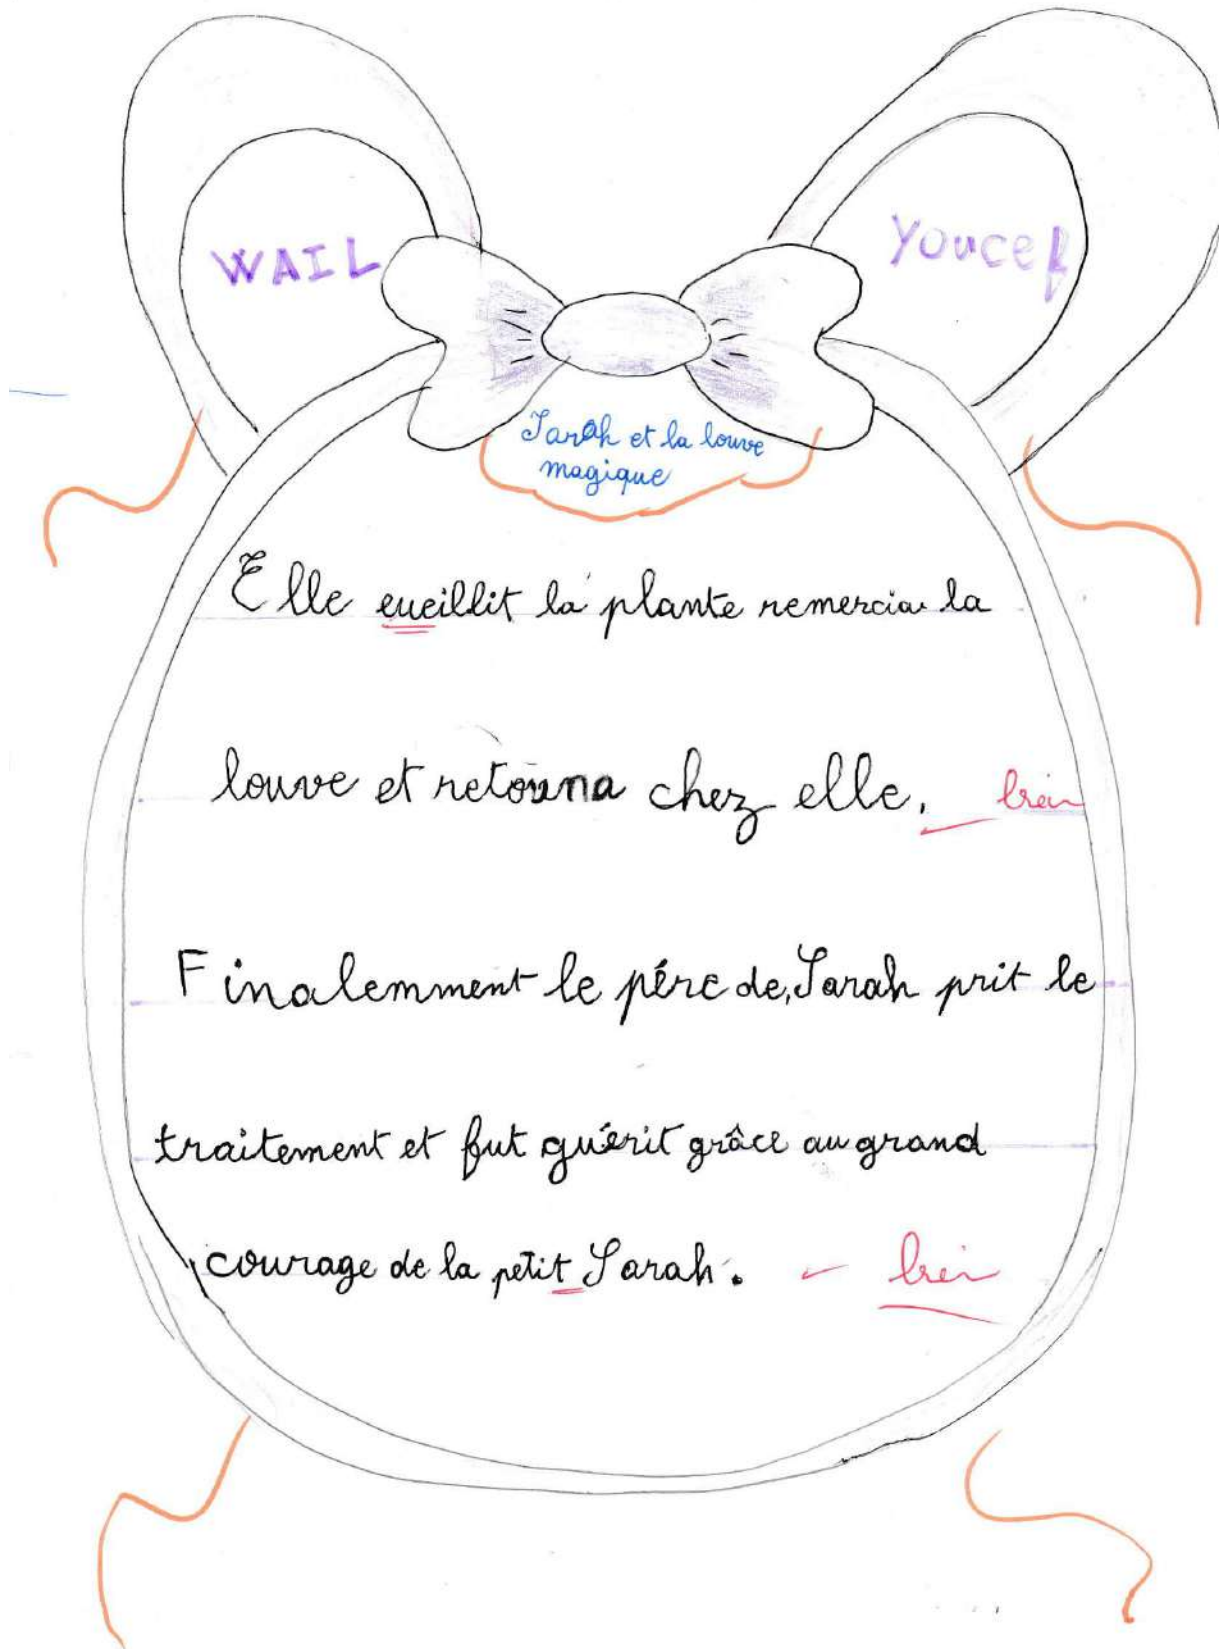 WAIL
Youcef
Sarah et la louve
magique
Elle eueillit la plante remercia la
louve et retourna chez elle. bien
Finalemment le pére de Sarah prit le
traitement et fut guérit grâce au grand
courage de la petit Sarah. bien